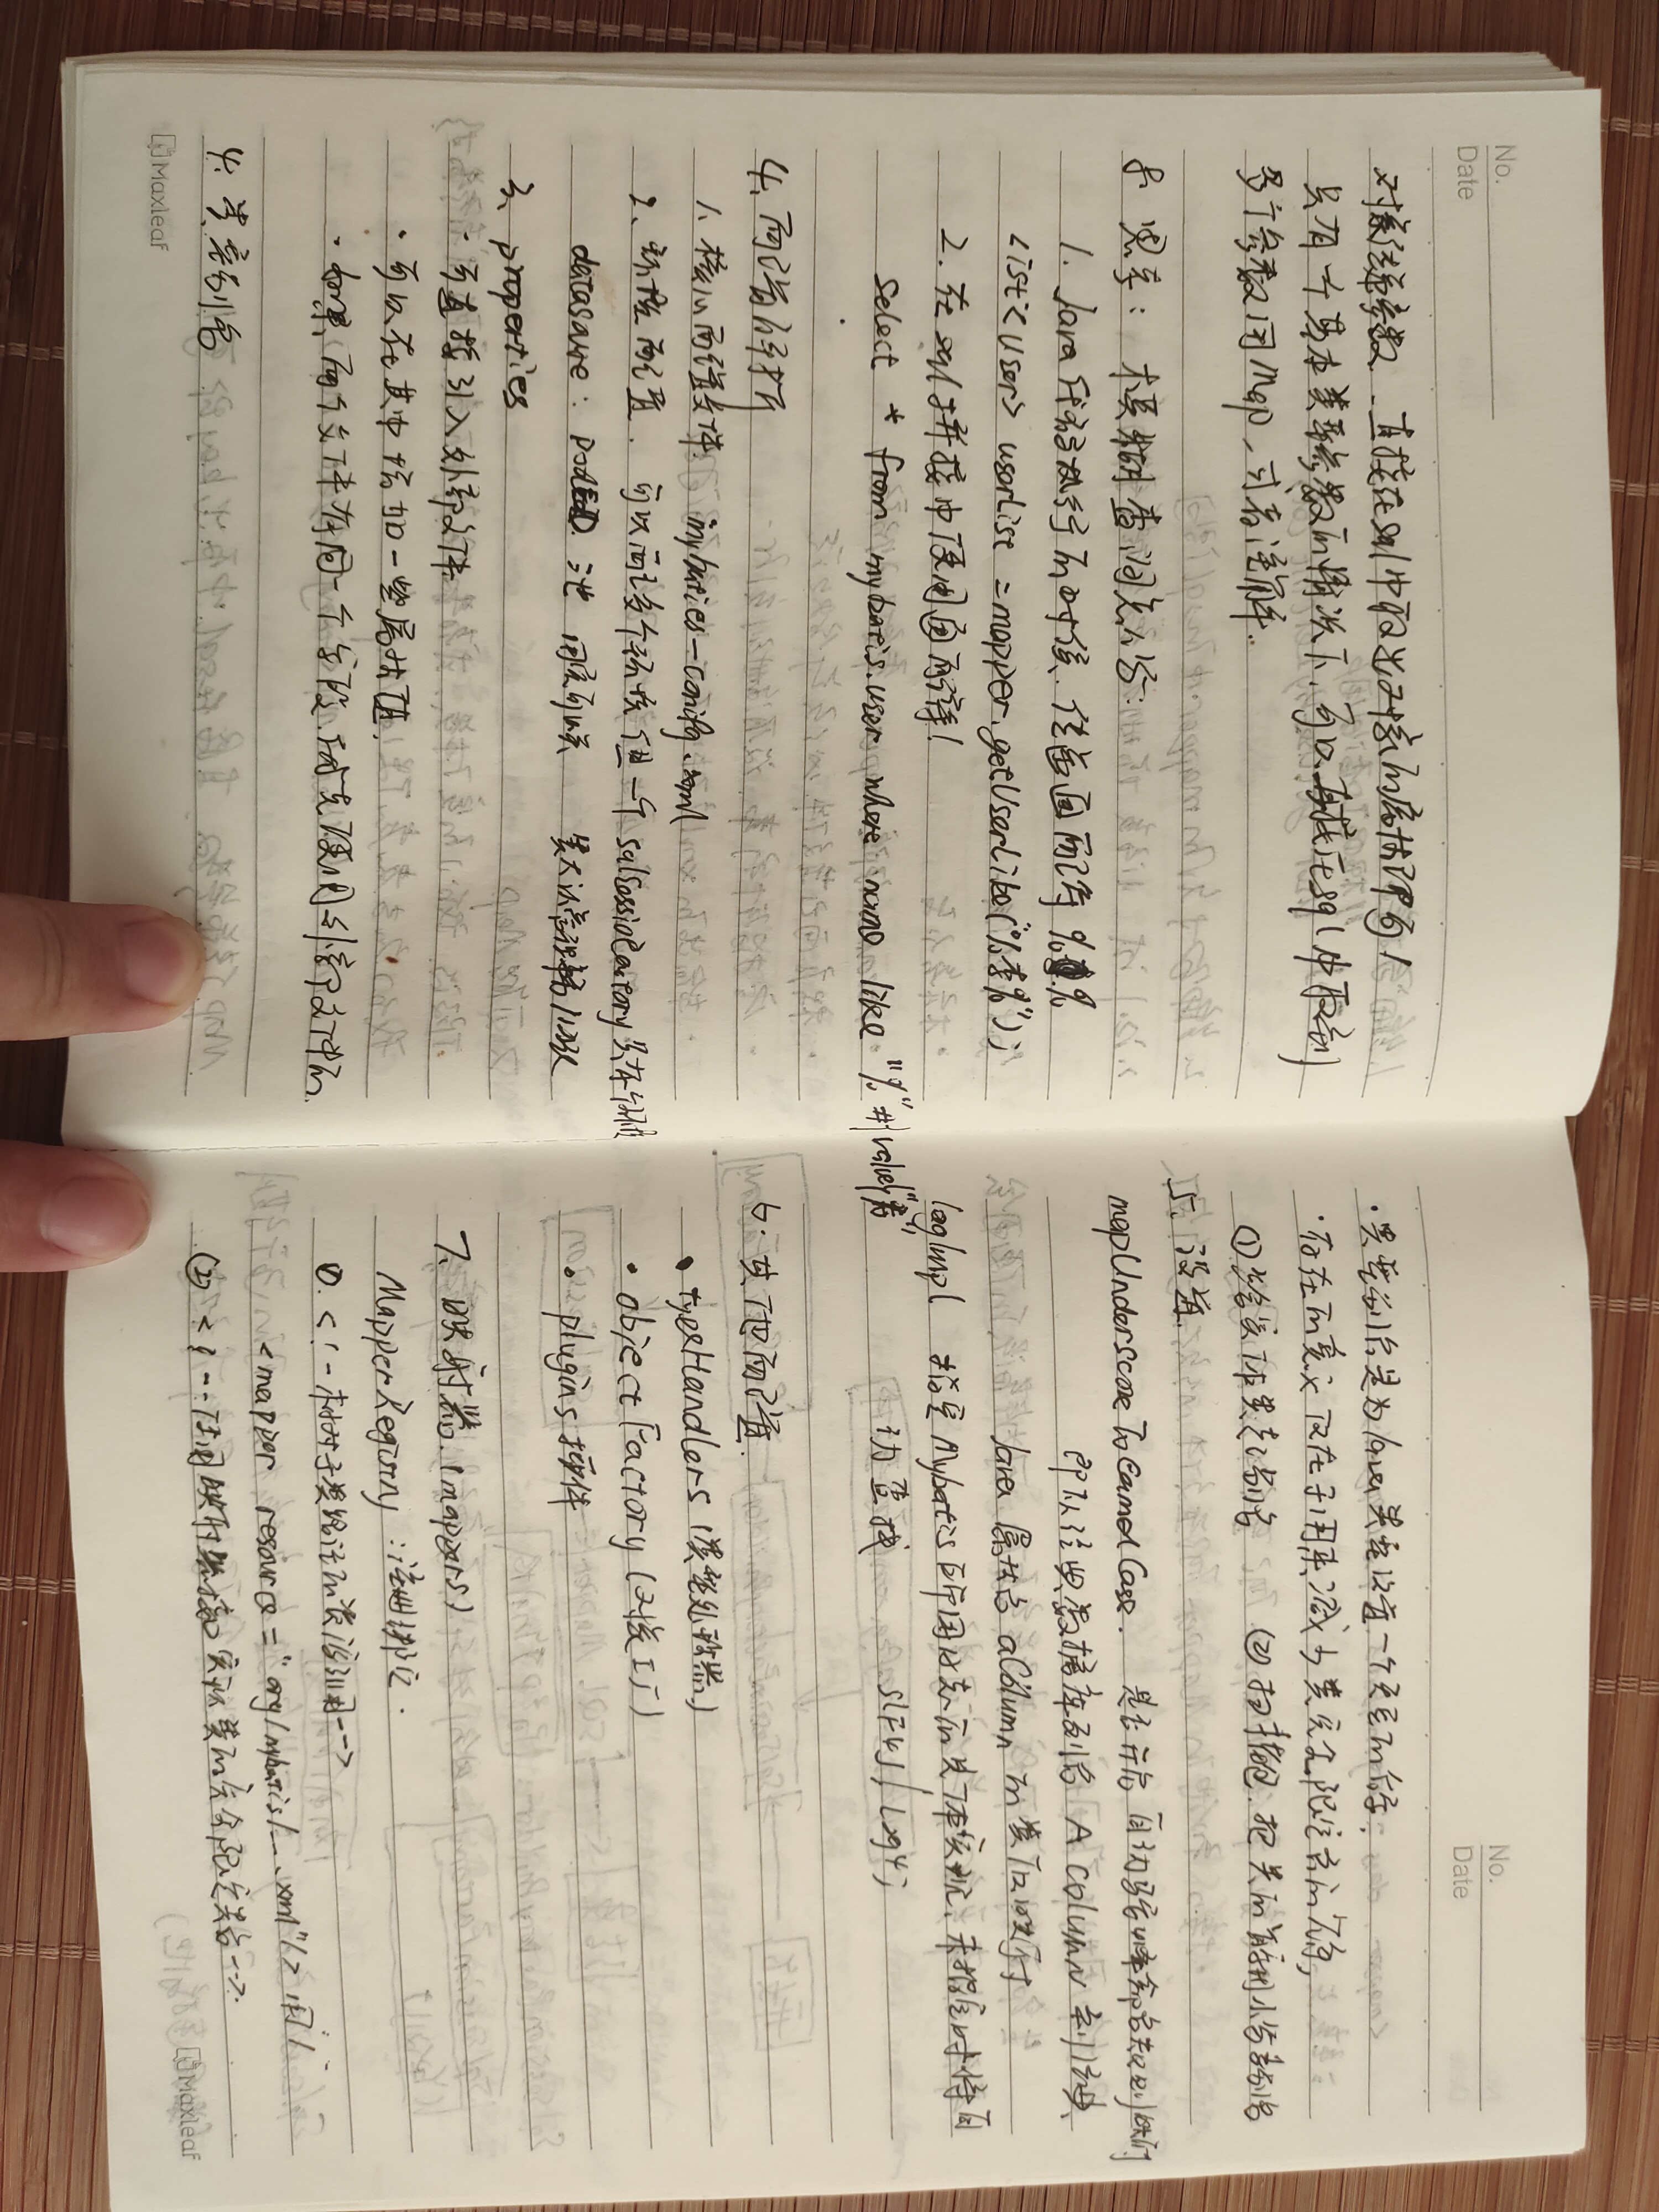 No.
Date
对象传递参数,直接在sql中取出对象的属性即可!
只有一个基本类型参数的情况下,可以直接在sql中取到
多个参数用Map,或者注解.
8. 思考:模糊查询怎么写
1. Java代码执行的时候,传通配符 % %
List<User> userlise = mapper.getUserLike("%李%");
2. 在sql拼接中使用通配符!
select * from mybatis.user where name like "%"#{value}"%"
4. 配置解析
1. 核心配置文件 mybaties-config.xml
2. 环境配置. 可以配多个环境 但一个
datasoure: pooled 池 用完可以
3. properties
· 可直接引入外部文件
· 可以在其中增加一些属性值
· 如果两个文件有同一个字段,优先使用外部文件的
4. 类型别名
Maxleaf
No.
Date
· 类型别名是为Java类型设置一个短的名字.
· 存在的意义仅在于用来减少类完全限定名的冗余,
① 给实体类起别名 (2) 扫描包.
5. 设置
mapUnderscoreToCamelCase. 是否开启自动驼峰命名规则映射
即从经典数据库列名 A_COLUMN 到经典
Java 属性名 aColumn 的类似映射
logImpl 指定Mybatis所用日志的具体实现,未指定时将自
动查找 SLF4J / Log4j
6. 其他配置.
· typeHandlers (类型处理器)
· objectFactory (对象工厂)
· plugins 插件
7. 映射器 (mappers)
MapperRegistry : 注册绑定.
①. <!-- 使用相对于类路径的资源引用 -->
<mapper resource = "org/mybatis/... xml"/>
(2) <!-- 使用映射器接口实现类的完全限定类名 -->.
Maxleaf